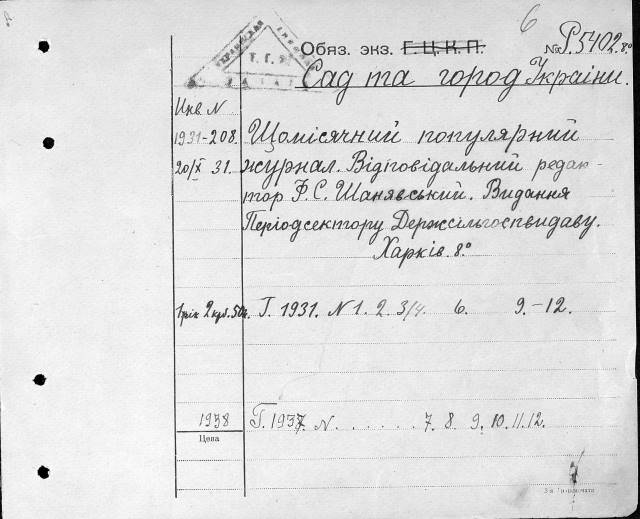 6
Обяз. экз. Г. Ц. К. П. № P.5402. 8°
Т. Г.
Сад та город України.
Инв N
1931-208. Щомісячний популярний
20/X 31. журнал. Відповідальний редак-
тор Ф. С. Шанявський. Видання
Періодсектору Держсільгоспвидаву.
Харків. 8°
1 рік 2 крб. 50к. Г. 1931. N 1. 2. 3/4. 6. 9.-12.
1938 Г. 1937. N . . . . . . 7. 8. 9. 10. 11. 12.
Цена